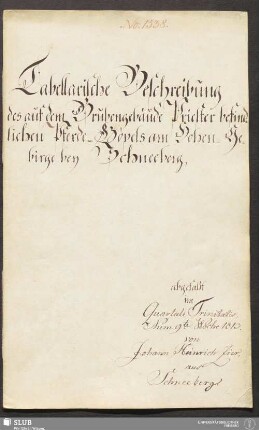 No. 1338.
Tabellarische Beschreibung
des auf dem Grubengebäude Priester befind
lichen Pferde-Göpels am Hohen Ge,
birge bey Schneeberg.
abgefaßt
im
Quartale Trinitatis
Num. 9te Woche 1813.
von
Johann Heinrich
aus
Schneeberg
SLUB